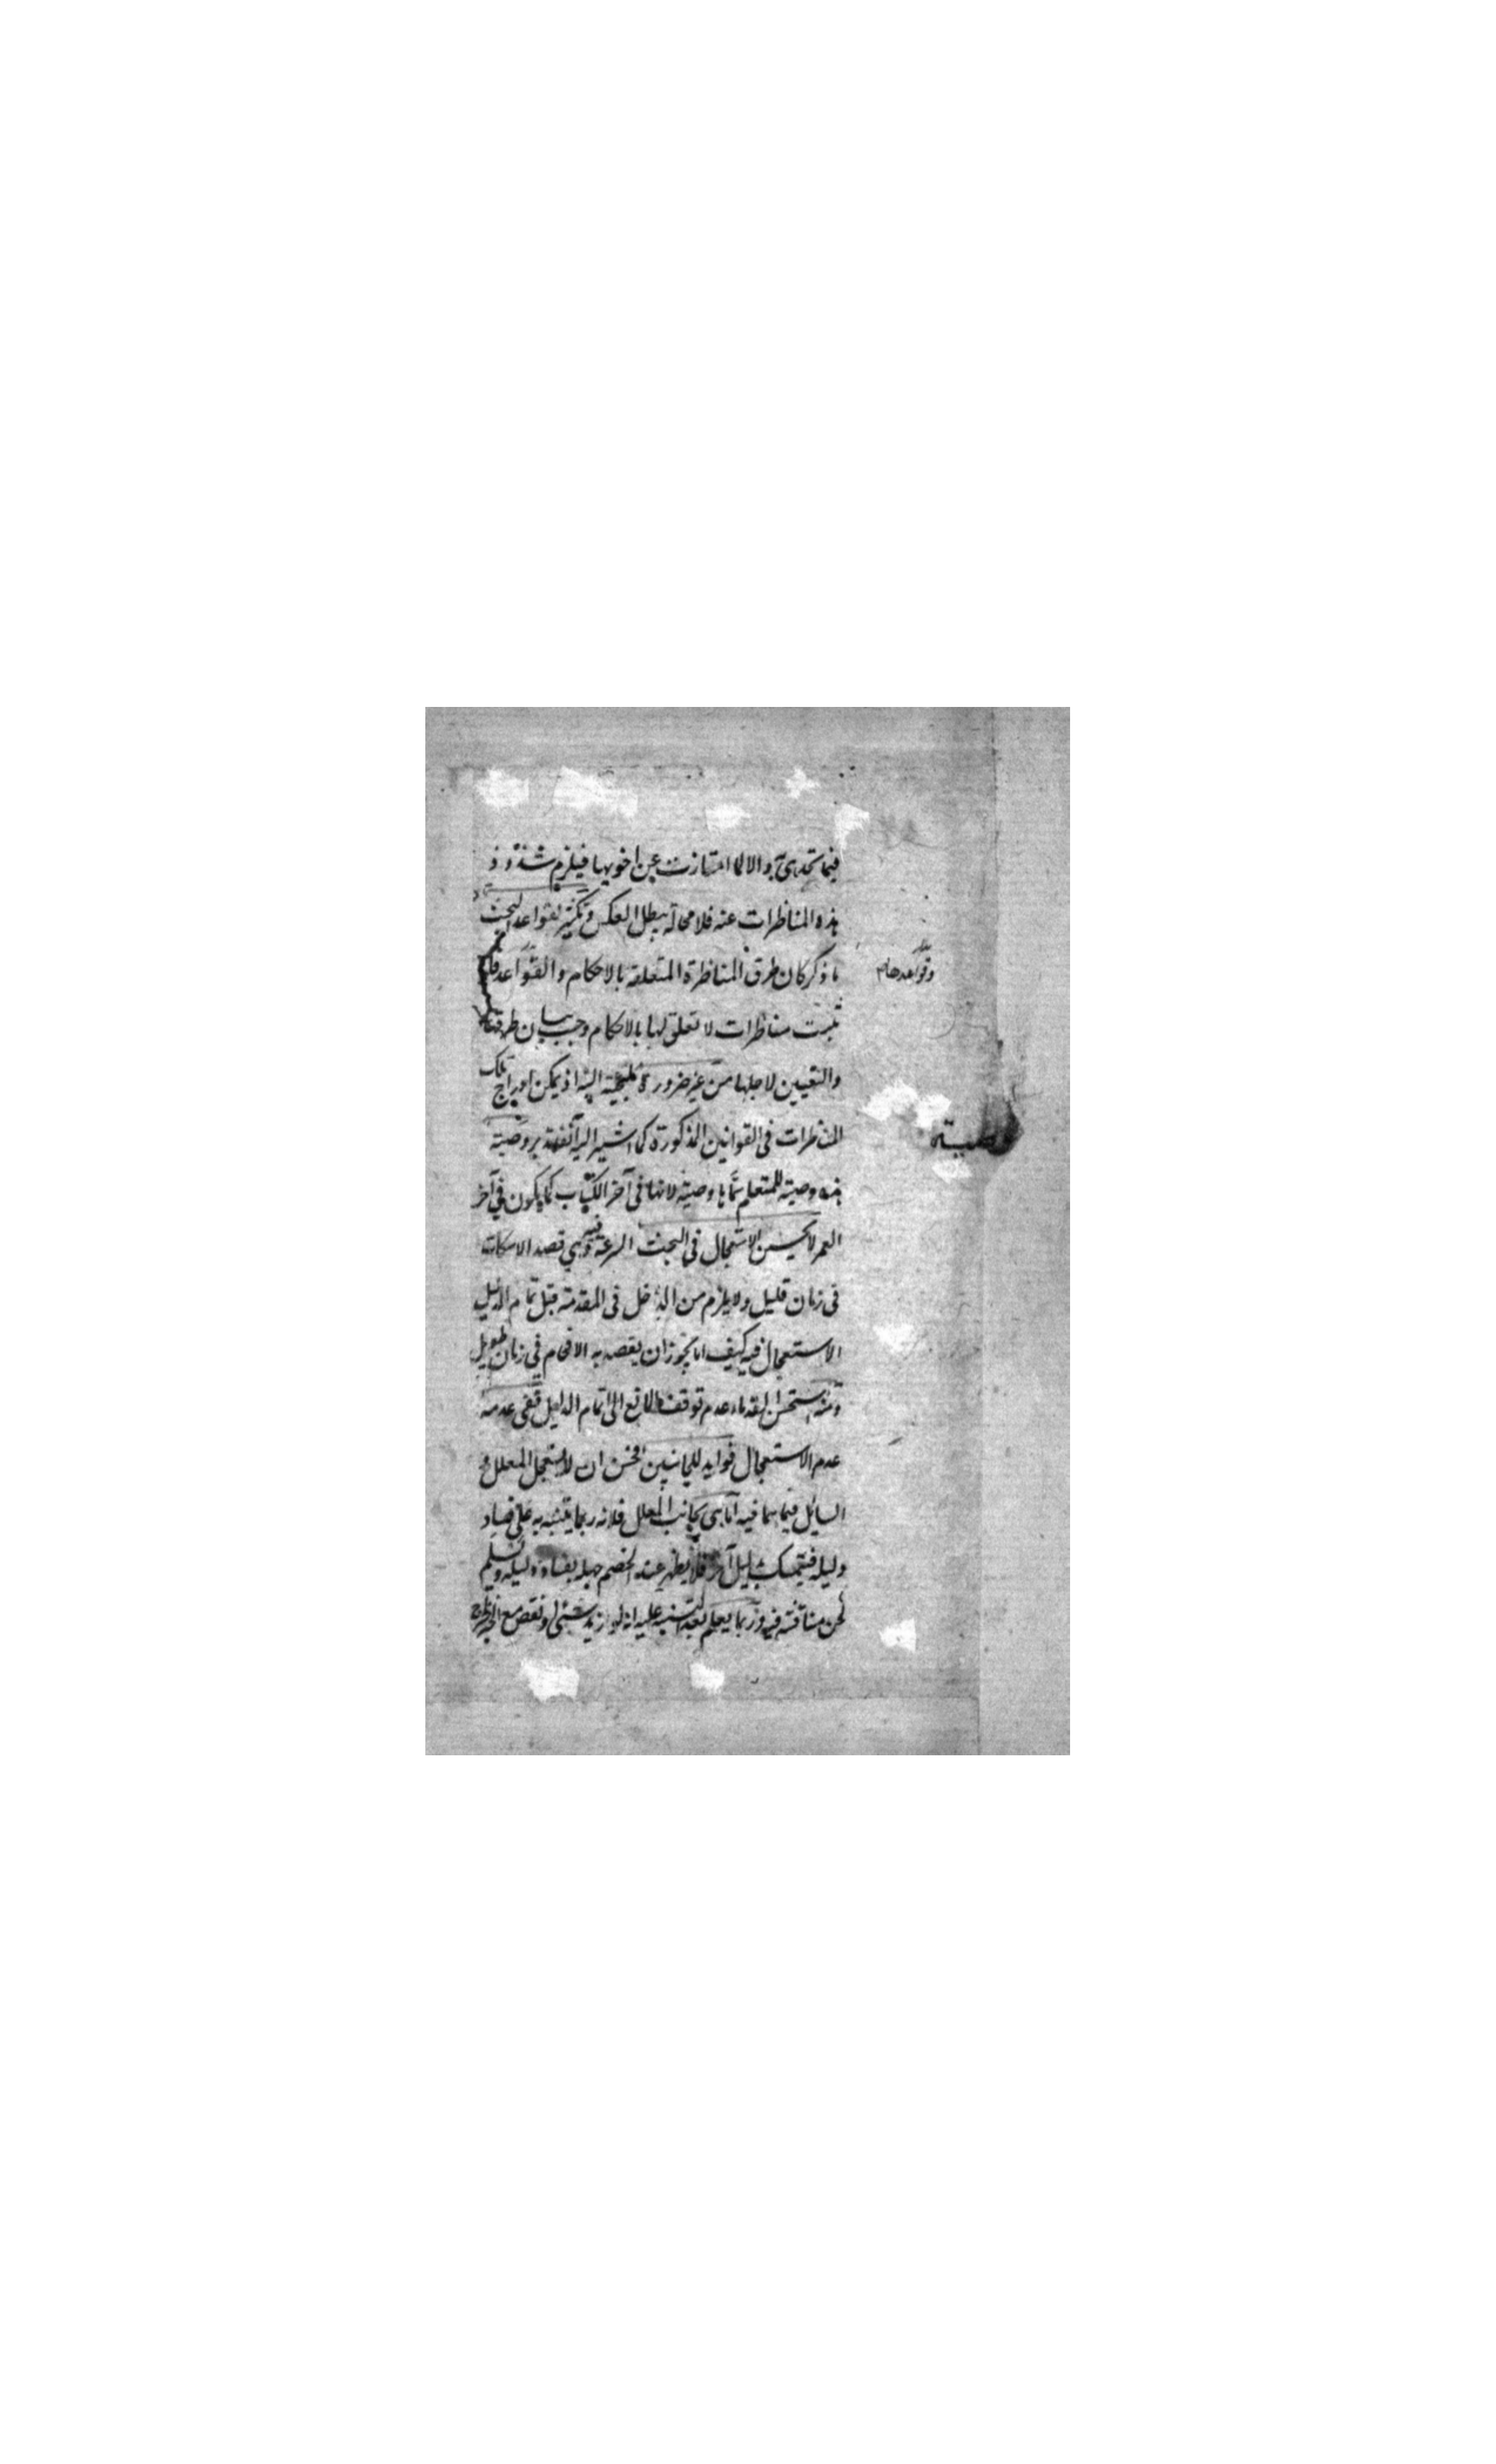 فيما تحدى به والا لما امتازت عن اخويها فيلزم شذوذ
هذه المناظرات عنه فلا محالة يبطل العكس وتكثير لقواعد البحث
ما ذكر كان طرق المناظرة المتعلقة بالاحكام والقواعد فلو
وقواعدها م
ثبتت مناظرات لا تعلق لها بالاحكام وجب بيان طرقها
والتعيين لاجلها من غير ضرورة ملجئة اليه اذ يمكن ادراج تلك
المناظرات في القوانين المذكورة كما اشير اليه آنفا وصية
وصية
هذه وصية للمتعلم سماها وصية لانها في آخر الكتاب كما يكون في آخر
العمر لا يحسن الاستعجال في البحث السرعة فيه وهي قصد الاسكات
في زمان قليل ولا يلزم من الدخل في المقدمة قبل تمام الدليل
الاستعجال فيه كيف اما يجوز ان يقصد به الافحام في زمان طويل
ومنه استحسن القدماء عدم توقف المانع الى اتمام الدليل ففي عدمه
عدم الاستعجال فوايد للجانبين فحسن ان لا يستعجل المعلل و
السايل فيما هما فيه اما هي بجانب المعلل فلانه ربما يتنبه به على فساد
دليله فيتمسك بدليل آخر فلا يظهر عند الخصم جهله بفساد دليله وتسليم
عن مناقشته فيه وربما يعلم بعد التنبه عليه انه لو ازيد شئى او نقص مع